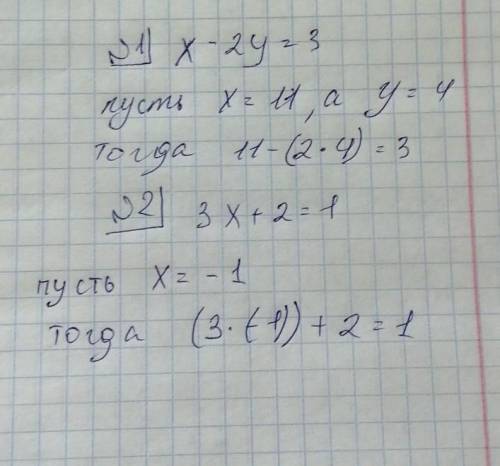 №1 x - 2y = 3
пусть x = 11, а y = 4
тогда 11 - (2 · 4) = 3
№2 3x + 2 = 1
пусть x = - 1
тогда (3 · (-1)) + 2 = 1